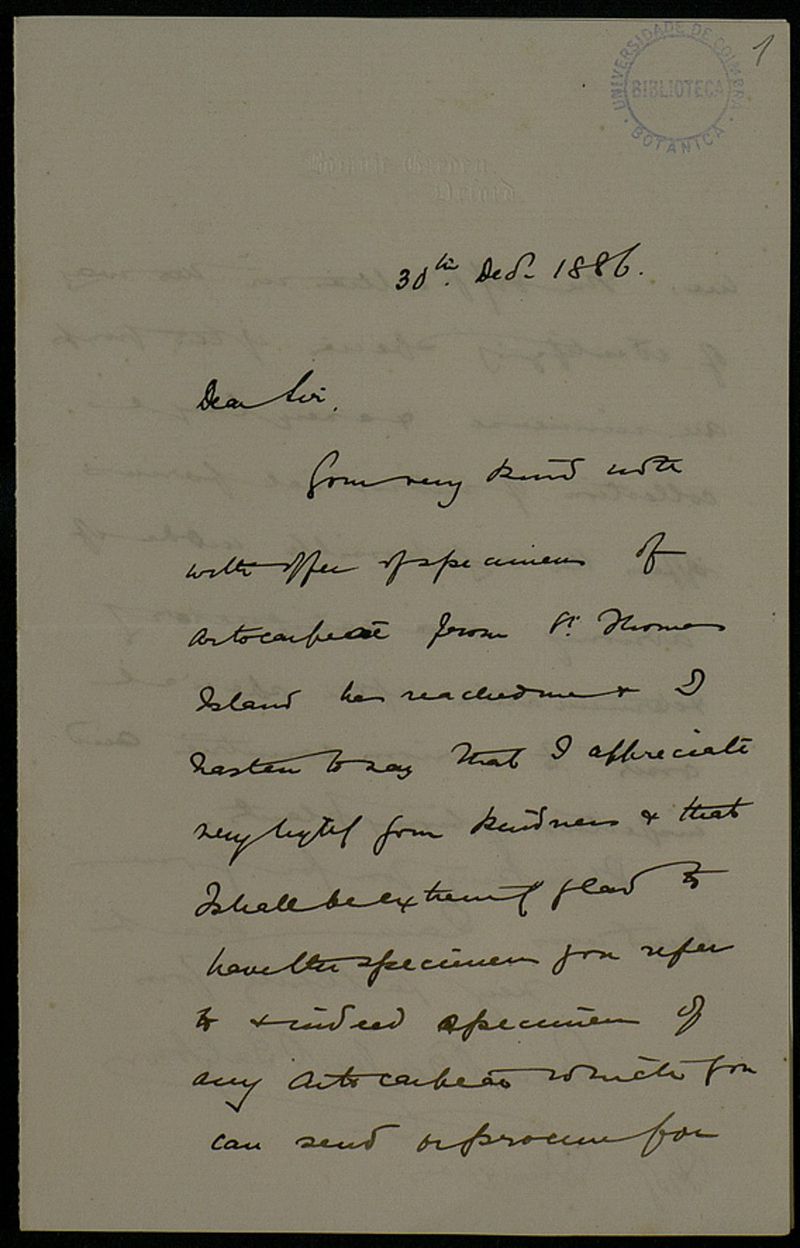 1
UNIVERSIDADE DE COIMBRA
BIBLIOTECA
BOTANICA
Botanic Garden
Oxford
30th. Decr. 1886.
Dear Sir,
Your very kind note
with offer of specimens of
Artocarpeae from St. Thomas
Island has reached me & I
hasten to say that I appreciate
very highly your kindness & that
I shall be extremely glad to
have the specimens you refer
to & indeed specimens of
any Artocarpeae which you
can send or procure for